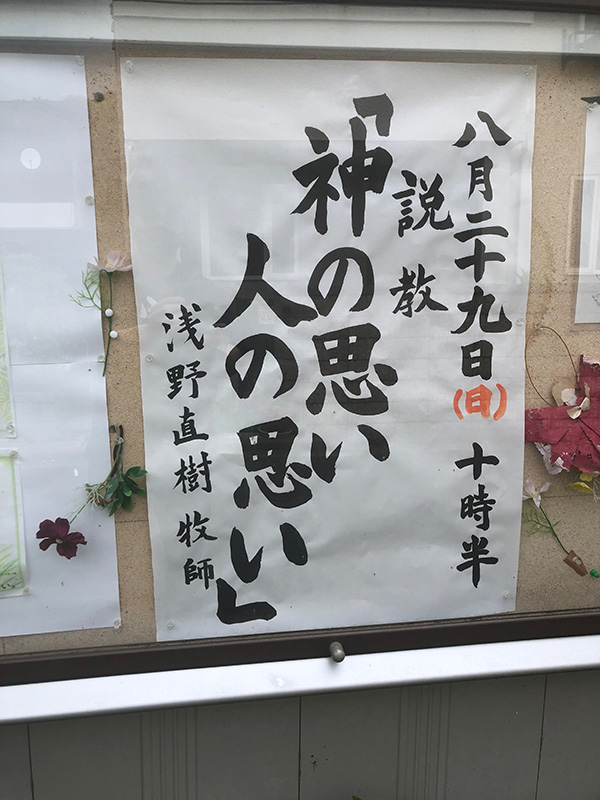 八月二十九日(日) 十時半
説教
「神の思い
人の思い」
浅野直樹 牧師